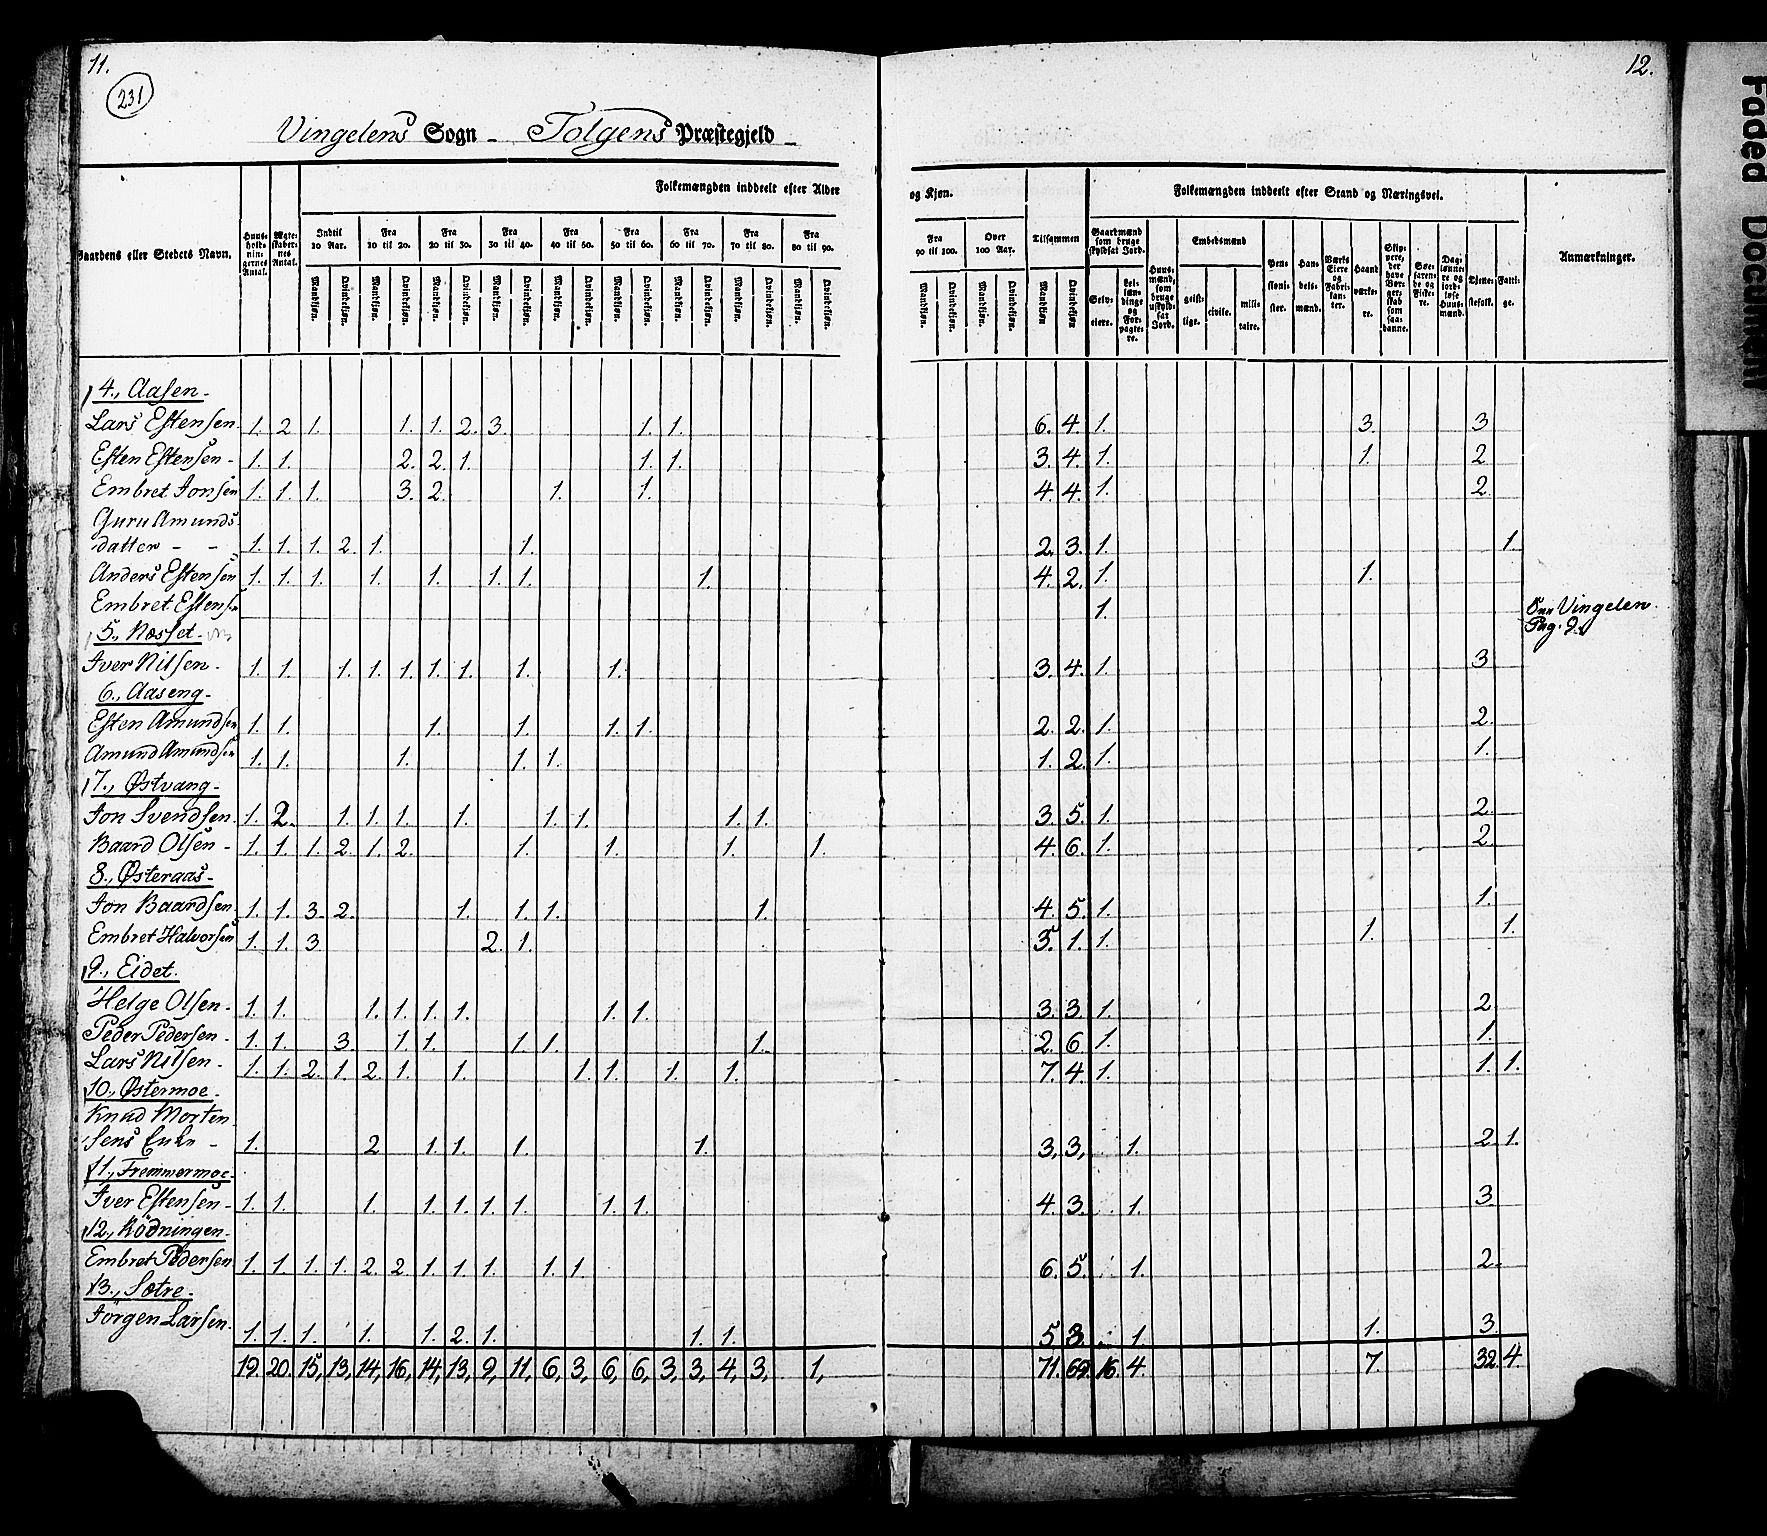 11.
231
Vingelens Sogn - Tolgens Præstegjeld -
12.
Gaardens eller Stedets Navn.
Huus-holdningernes Antal.
Ægteskabernes Antal.
Folkemængden inddeelt efter Alder og Kjøn.
Indtil 10 Aar. Fra 10 til 20. Fra 20 til 30. Fra 30 til 40. Fra 40 til 50. Fra 50 til 60. Fra 60 til 70. Fra 70 til 80. Fra 80 til 90. Fra 90 til 100. Over 100 Aar. Tilsammen
Mandkjøn. Qvindekjøn.
Folkemængden inddeelt efter Stand og Næringsvei.
Gaardmænd som bruge skyldsat Jord.
Selveiere.
Leilændinge og Forpagtere.
Huusmænd, som bruge uskyldsat Jord.
Embedsmænd
geistlige. civile. militaire.
Pensionister.
Handelsmænd.
Værks Eiere og Fabrikanter.
Haandværkere.
Skippere, der have Borgerskab som saadanne.
Søefarende og Fiskere.
Dagslønnere og jordløse Huusmænd.
Tjenestefolk.
Fattige.
Anmærkninger.
14., Aasen -
Lars Estensen 1. 2 1. 1. 1. 2. 3. 1. 1. 6. 4. 1. 3. 3
Esten Estensen - 1. 1. 2. 2. 1. 1. 1. 3. 4. 1. 1. 2
Embret Jonsen 1. 1. 1. 3. 2. 1. 1. 4. 4. 1. 2
Guru Amunds
datter - - 1. 1. 1. 2. 1. 1. 2. 3. 1. 1.
Anders Estensen 1. 1. 1. 1. 1. 1. 1. 1. 4. 2. 1. 1.
Embret Estensen 1. Vingelen
Pag. 9.
15., Næsset -
Iver Nilsen - 1. 1. 1. 1. 1. 1. 1. 1. 1. 3. 4. 1. 3
6., Aaseng -
Esten Amundsen 1. 1. 1. 1. 1. 1. 2. 2. 1. 2.
Amund Amundsen 1. 1. 1. 1. 1. 1. 2. 1. 1.
17., Østvang -
Jon Svendsen. 1. 2. 1. 1. 1. 1. 1. 1. 1. 1. 3. 5. 1. 2.
Baard Olsen - 1. 1. 1. 2. 1. 2. 1. 1. 1. 1. 4. 6. 1. 2.
8., Østeraas -
Jon Baardsen. 1. 1. 3. 2. 1. 1. 1. 1. 4. 5. 1. 1.
Embret Halvorsen 1. 1. 3 2. 1. 5. 1. 1. 1. 1.
19., Eidet.
Helge Olsen - 1. 1. 1. 1. 1. 1. 1. 1. 3. 3. 1. 2
Peder Pedersen - 1. 1. 3. 1. 1. 1. 1. 1. 2. 6. 1. 1.
Lars Nilsen - 1. 1. 2. 1. 2. 1. 1. 1. 1. 1. 1. 7. 4. 1. 1. 1.
10., Østermoe -
Knud Morten
sens Enke - 1. 2 1. 1. 1. 1. 3, 3, 1. 2 1.
11., Fremmermoe -
Iver Estensen - 1. 1. 1. 1. 1. 1. 1. 1. 1. 4. 3. 1. 3.
12., Rödningen -
Embret Pedersen 1. 1. 1. 1. 2. 2. 1. 1. 1. 1. 1. 6. 5. 1. 2.
13., Sætre -
Jörgen Larsen. 1. 1. 1. 1. 1. 2. 1. 1. 1. 5 3. 1. 1. 3
19. 20. 15, 13, 14, 16, 14, 13, 9, 11, 6, 3, 6, 6, 3, 3, 4, 3, 1, 71. 69. 16. 4. 7. 32 4.
Faded Document